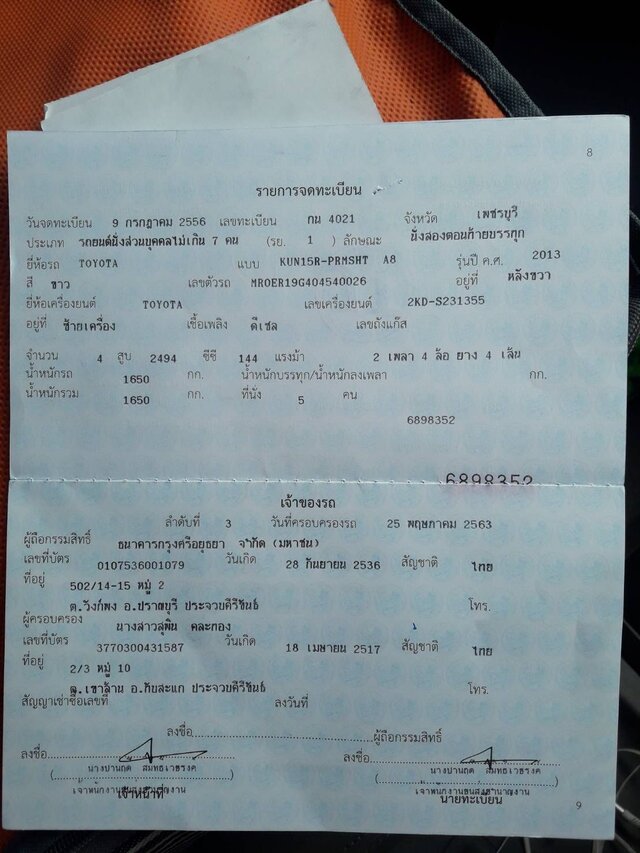 8
รายการจดทะเบียน
วันจดทะเบียน 9 กรกฎาคม 2556 เลขทะเบียน กน 4021 จังหวัด เพชรบุรี
ประเภท รถยนต์นั่งส่วนบุคคลไม่เกิน 7 คน (รย. 1 ) ลักษณะ นั่งสองตอนท้ายบรรทุก
ยี่ห้อรถ TOYOTA แบบ KUN15R-PRMSHT A8 รุ่นปี ค.ศ. 2013
สี ขาว เลขตัวรถ MROER19G404540026 อยู่ที่ หลังขวา
ยี่ห้อเครื่องยนต์ TOYOTA เลขเครื่องยนต์ 2KD-S231355
อยู่ที่ ซ้ายเครื่อง เชื้อเพลิง ดีเซล เลขถังแก๊ส
จำนวน 4 สูบ 2494 ซีซี 144 แรงม้า 2 เพลา 4 ล้อ ยาง 4 เส้น
น้ำหนักรถ 1650 กก. น้ำหนักบรรทุก/น้ำหนักลงเพลา กก.
น้ำหนักรวม 1650 กก. ที่นั่ง 5 คน
6898352
6898352
เจ้าของรถ
ลำดับที่ 3 วันที่ครอบครองรถ 25 พฤษภาคม 2563
ผู้ถือกรรมสิทธิ์ ธนาคารกรุงศรีอยุธยา จำกัด (มหาชน)
เลขที่บัตร 0107536001079 วันเกิด 28 กันยายน 2536 สัญชาติ ไทย
ที่อยู่ 502/14-15 หมู่ 2
ต.วังก์พง อ.ปราณบุรี ประจวบคีรีขันธ์ โทร.
ผู้ครอบครอง นางสาวสุพิน คละทอง
เลขที่บัตร 3770300431587 วันเกิด 18 เมษายน 2517 สัญชาติ ไทย
ที่อยู่ 2/3 หมู่ 10
ต.เขาล้าน อ.ทับสะแก ประจวบคีรีขันธ์ โทร.
สัญญาเช่าซื้อเลขที่ ลงวันที่
ลงชื่อ ผู้ถือกรรมสิทธิ์
ลงชื่อ
เจ้าหน้าที่ นายทะเบียน
9